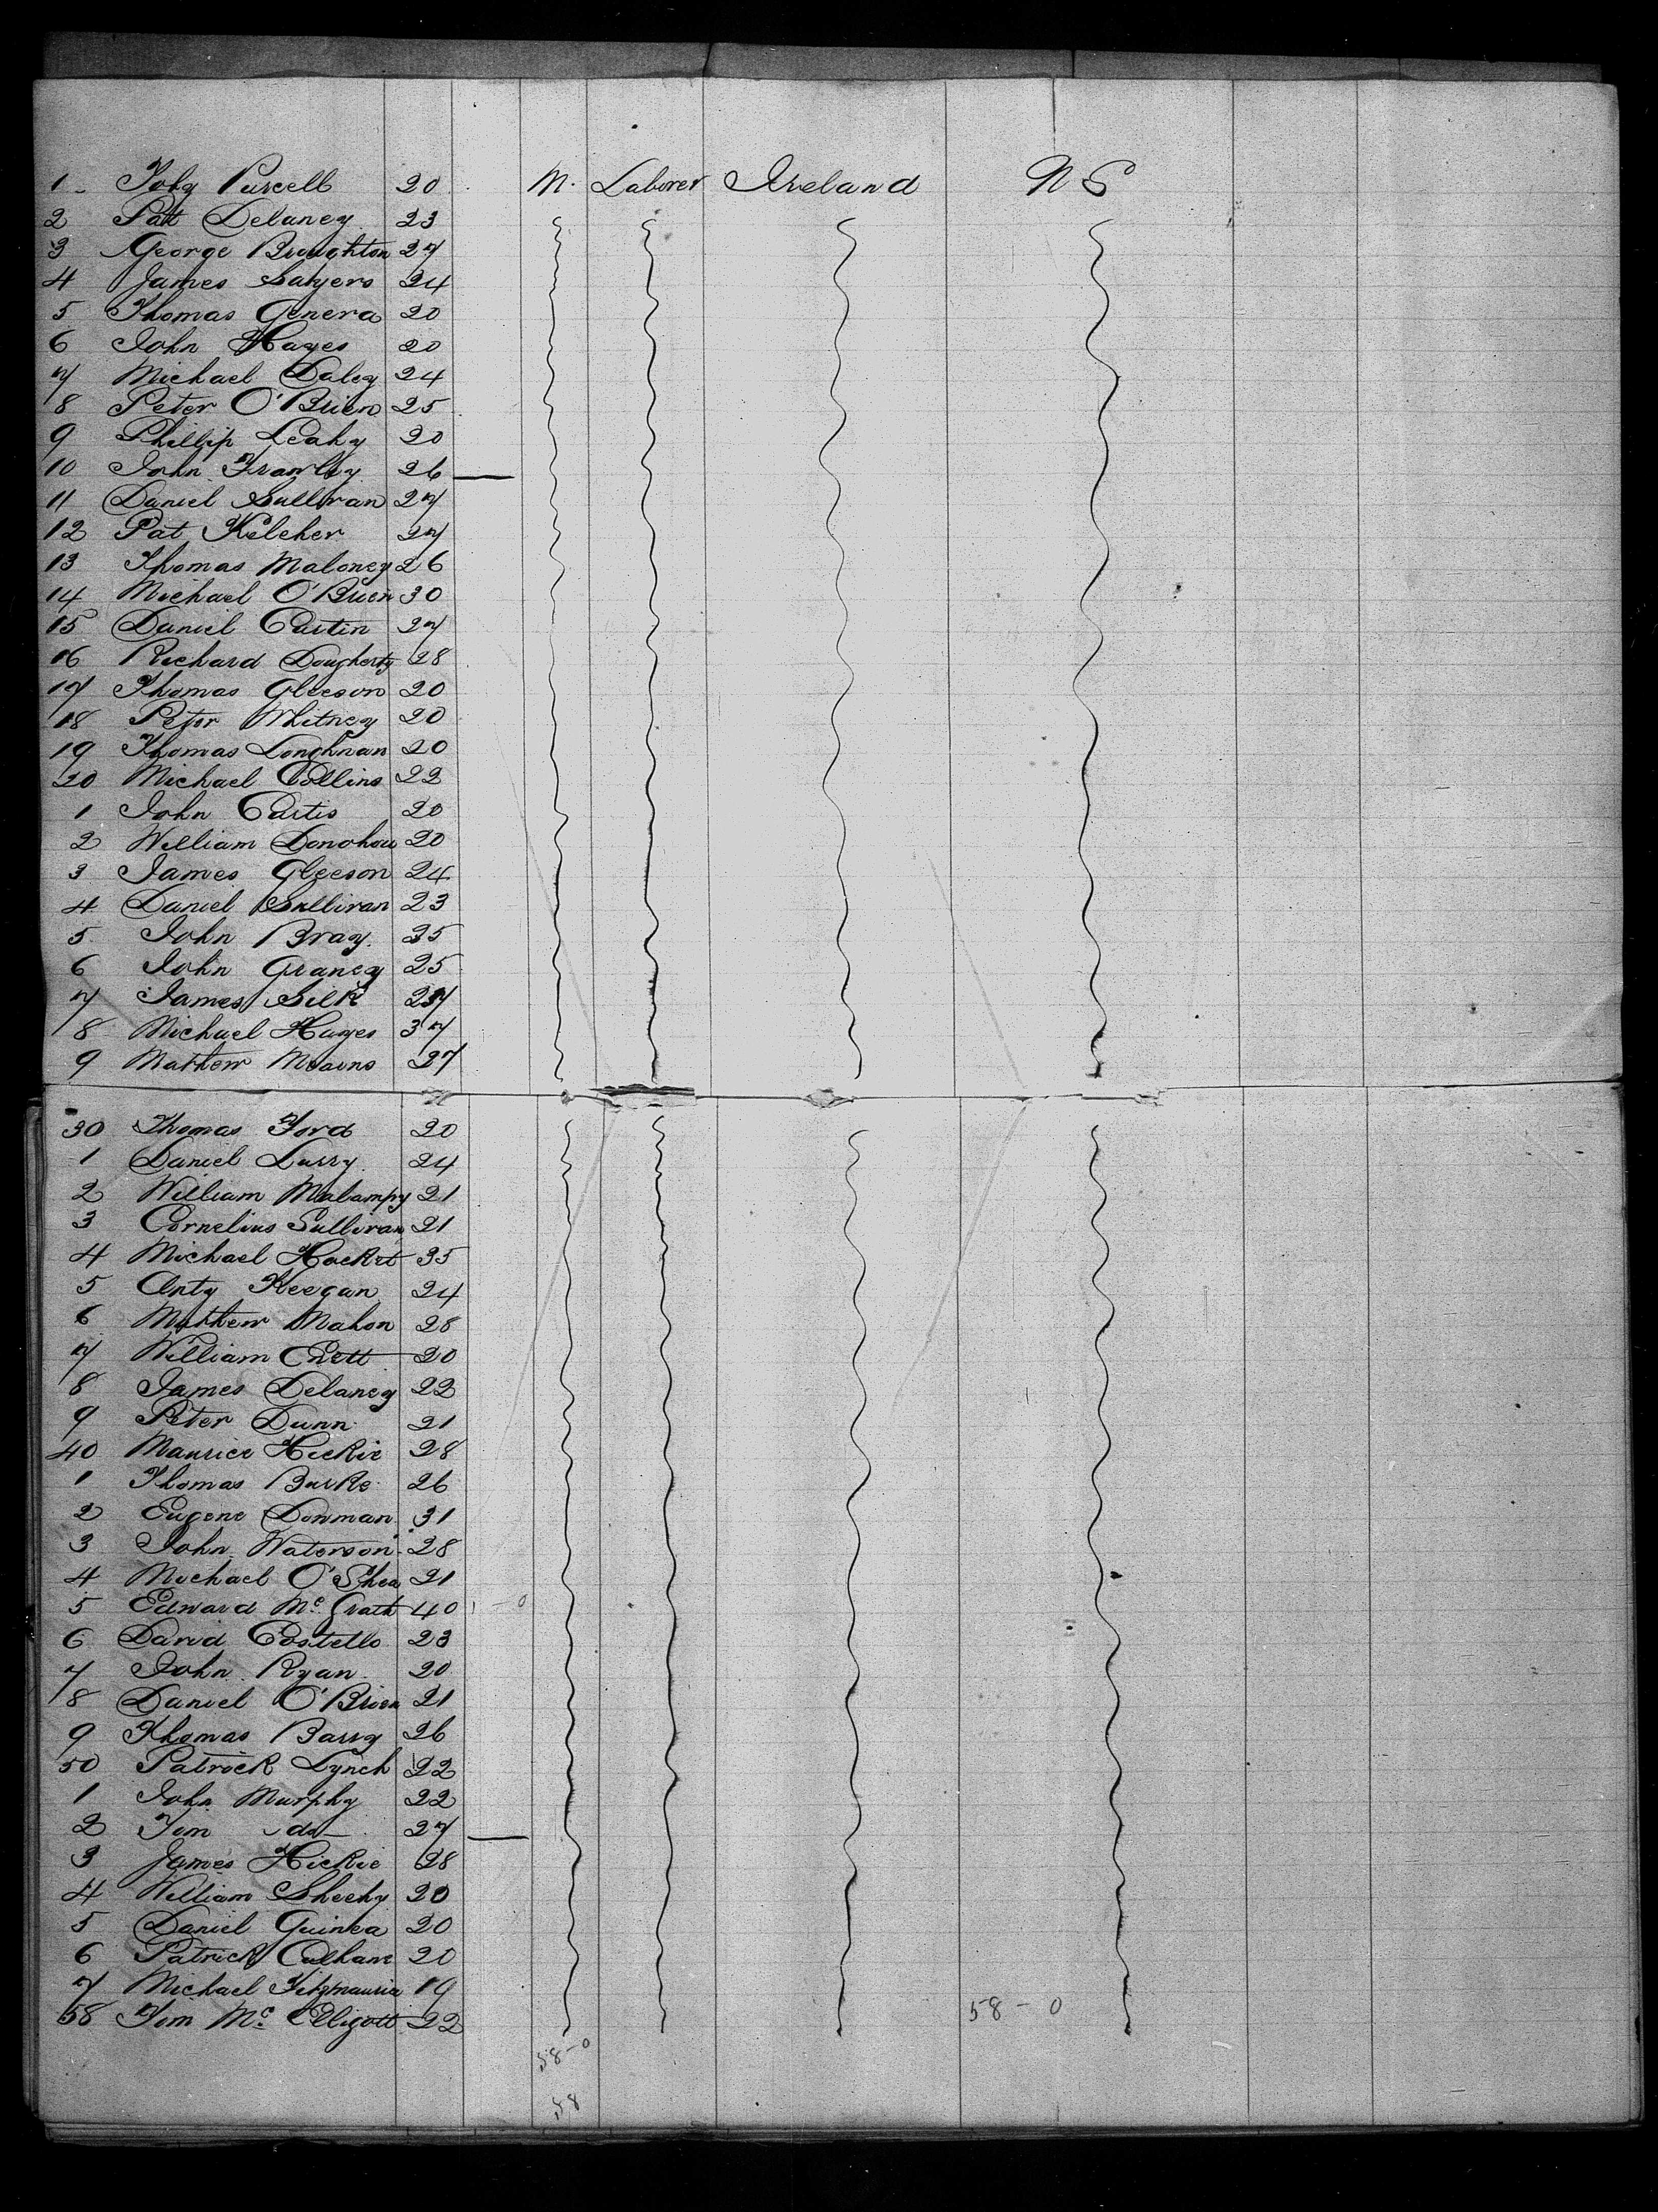 1 - Toby Purcell 20 M. Laborer Ireland N S
2 Pat Delaney 23
3 George Broughton 27
4 James Sayers 24
5 Thomas Genera 20
6 John Hayes 20
7 Michael Daley 24
8 Peter O'Brien 25
9 Phillip Leahy 20
10 John Frawley 26 —
11 Daniel Sullivan 27
12 Pat Keleher 27
13 Thomas Maloney 26
14 Michael O'Brien 30
15 Daniel Curtin 27
16 Richard Dougherty 28
17 Thomas Gleeson 20
18 Peter Whitney 20
19 Thomas Loughnan 20
20 Michael Collins 22
1 John Curtis 20
2 William Donohou 20
3 James Gleeson 24
4 Daniel Sullivan 23
5 John Bray 25
6 John Graney 25
7 James Silk 27
8 Michael Hayes 37
9 Mathew 27
30 Thomas Ford 20
1 Daniel Lurry 24
2 William Malampy 21
3 Cornelius Sullivan 21
4 Michael Hacket 35
5 Anty Keegan 24
6 Mathew Mahon 28
7 William 20
8 James Delaney 22
9 Peter Dunn 21
40 Maurice Hickie 28
1 Thomas Burke 26
2 Eugene Donman 31
3 John Waterson 28
4 Michael O'Shea 21
5 Edward Mc Grath 40 1 - 0
6 David Costello 23
7 John Ryan 20
8 Daniel O'Brien 21
9 Thomas Barry 26
50 Patrick Lynch 22
1 John Murphy 22
2 Tim do 27 —
3 James Hickie 28
4 William Sheehy 20
5 Daniel Guinea 20
6 Patrick Culhane 20
7 Michael Fitzmaurice 19
58 Tom Mc Elligott 22 58 - 0
58 - 0
58